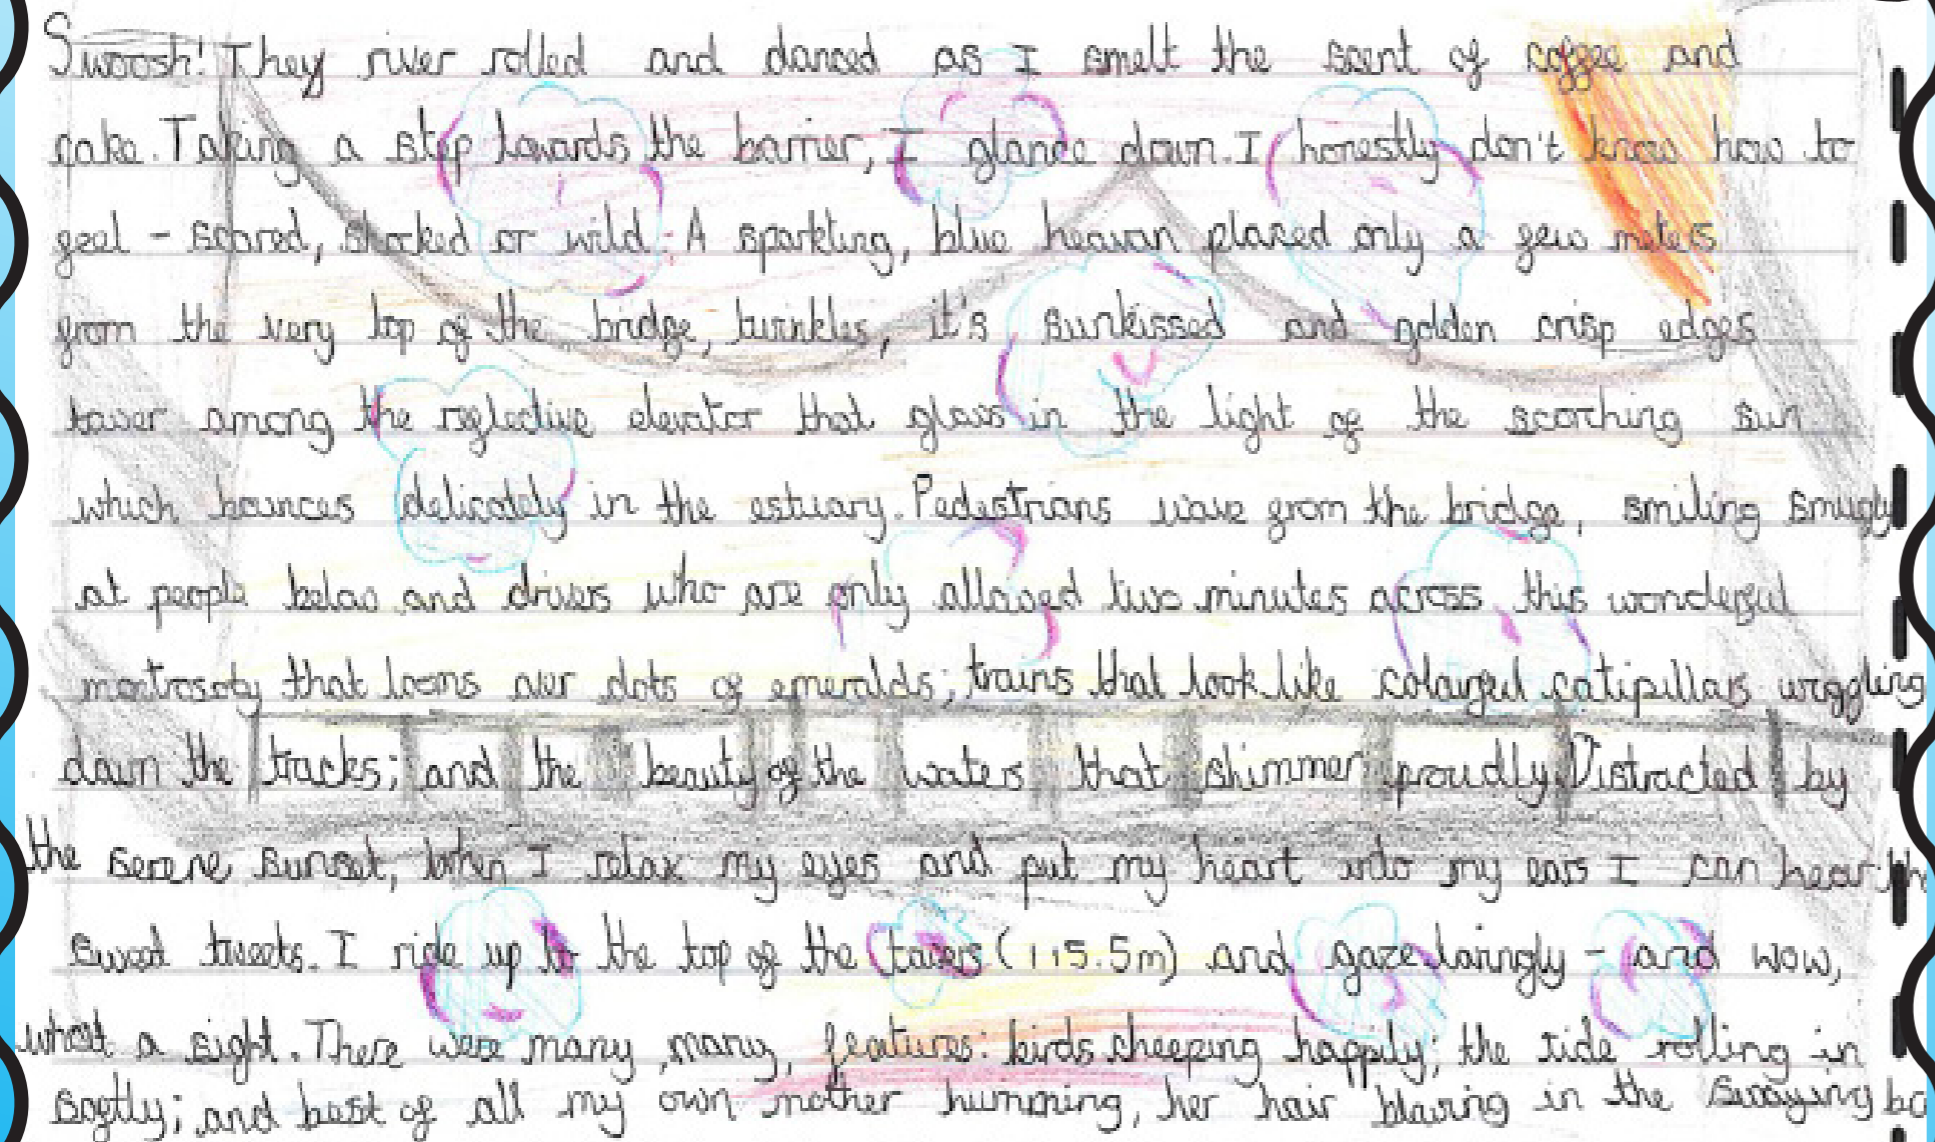 Swoosh! They river rolled and danced as I smelt the scent of coffee and
cake. Taking a step towards the barrier, I glance down. I honestly don't know how to
feel - scared, shocked or wild. A sparkling, blue heaven placed only a few meters
from the very top of the bridge, twinkles, it's sunkissed and golden crisp edges
tower among the reflective elevator that glows in the light of the scorching sun
which bounces delicately in the estuary. Pedestrians wave from the bridge, smiling smugly
at people below and drivers who are only allowed two minutes across this wonderful
montrosoty that looms over dots of emeralds; trains that look like coloured catipillars wiggling
down the tracks; and the beauty of the waters that shimmer proudly. Distracted by
the serene sunset, when I relax my eyes and put my heart into my ears I can hear
sweet tweets. I ride up to the top of the towers (115.5m) and gaze lovingly - and wow,
what a sight. There were many, many, features: birds cheeping happily; the tide rolling in
softly; and best of all my own mother humming, her hair blowing in the swaying